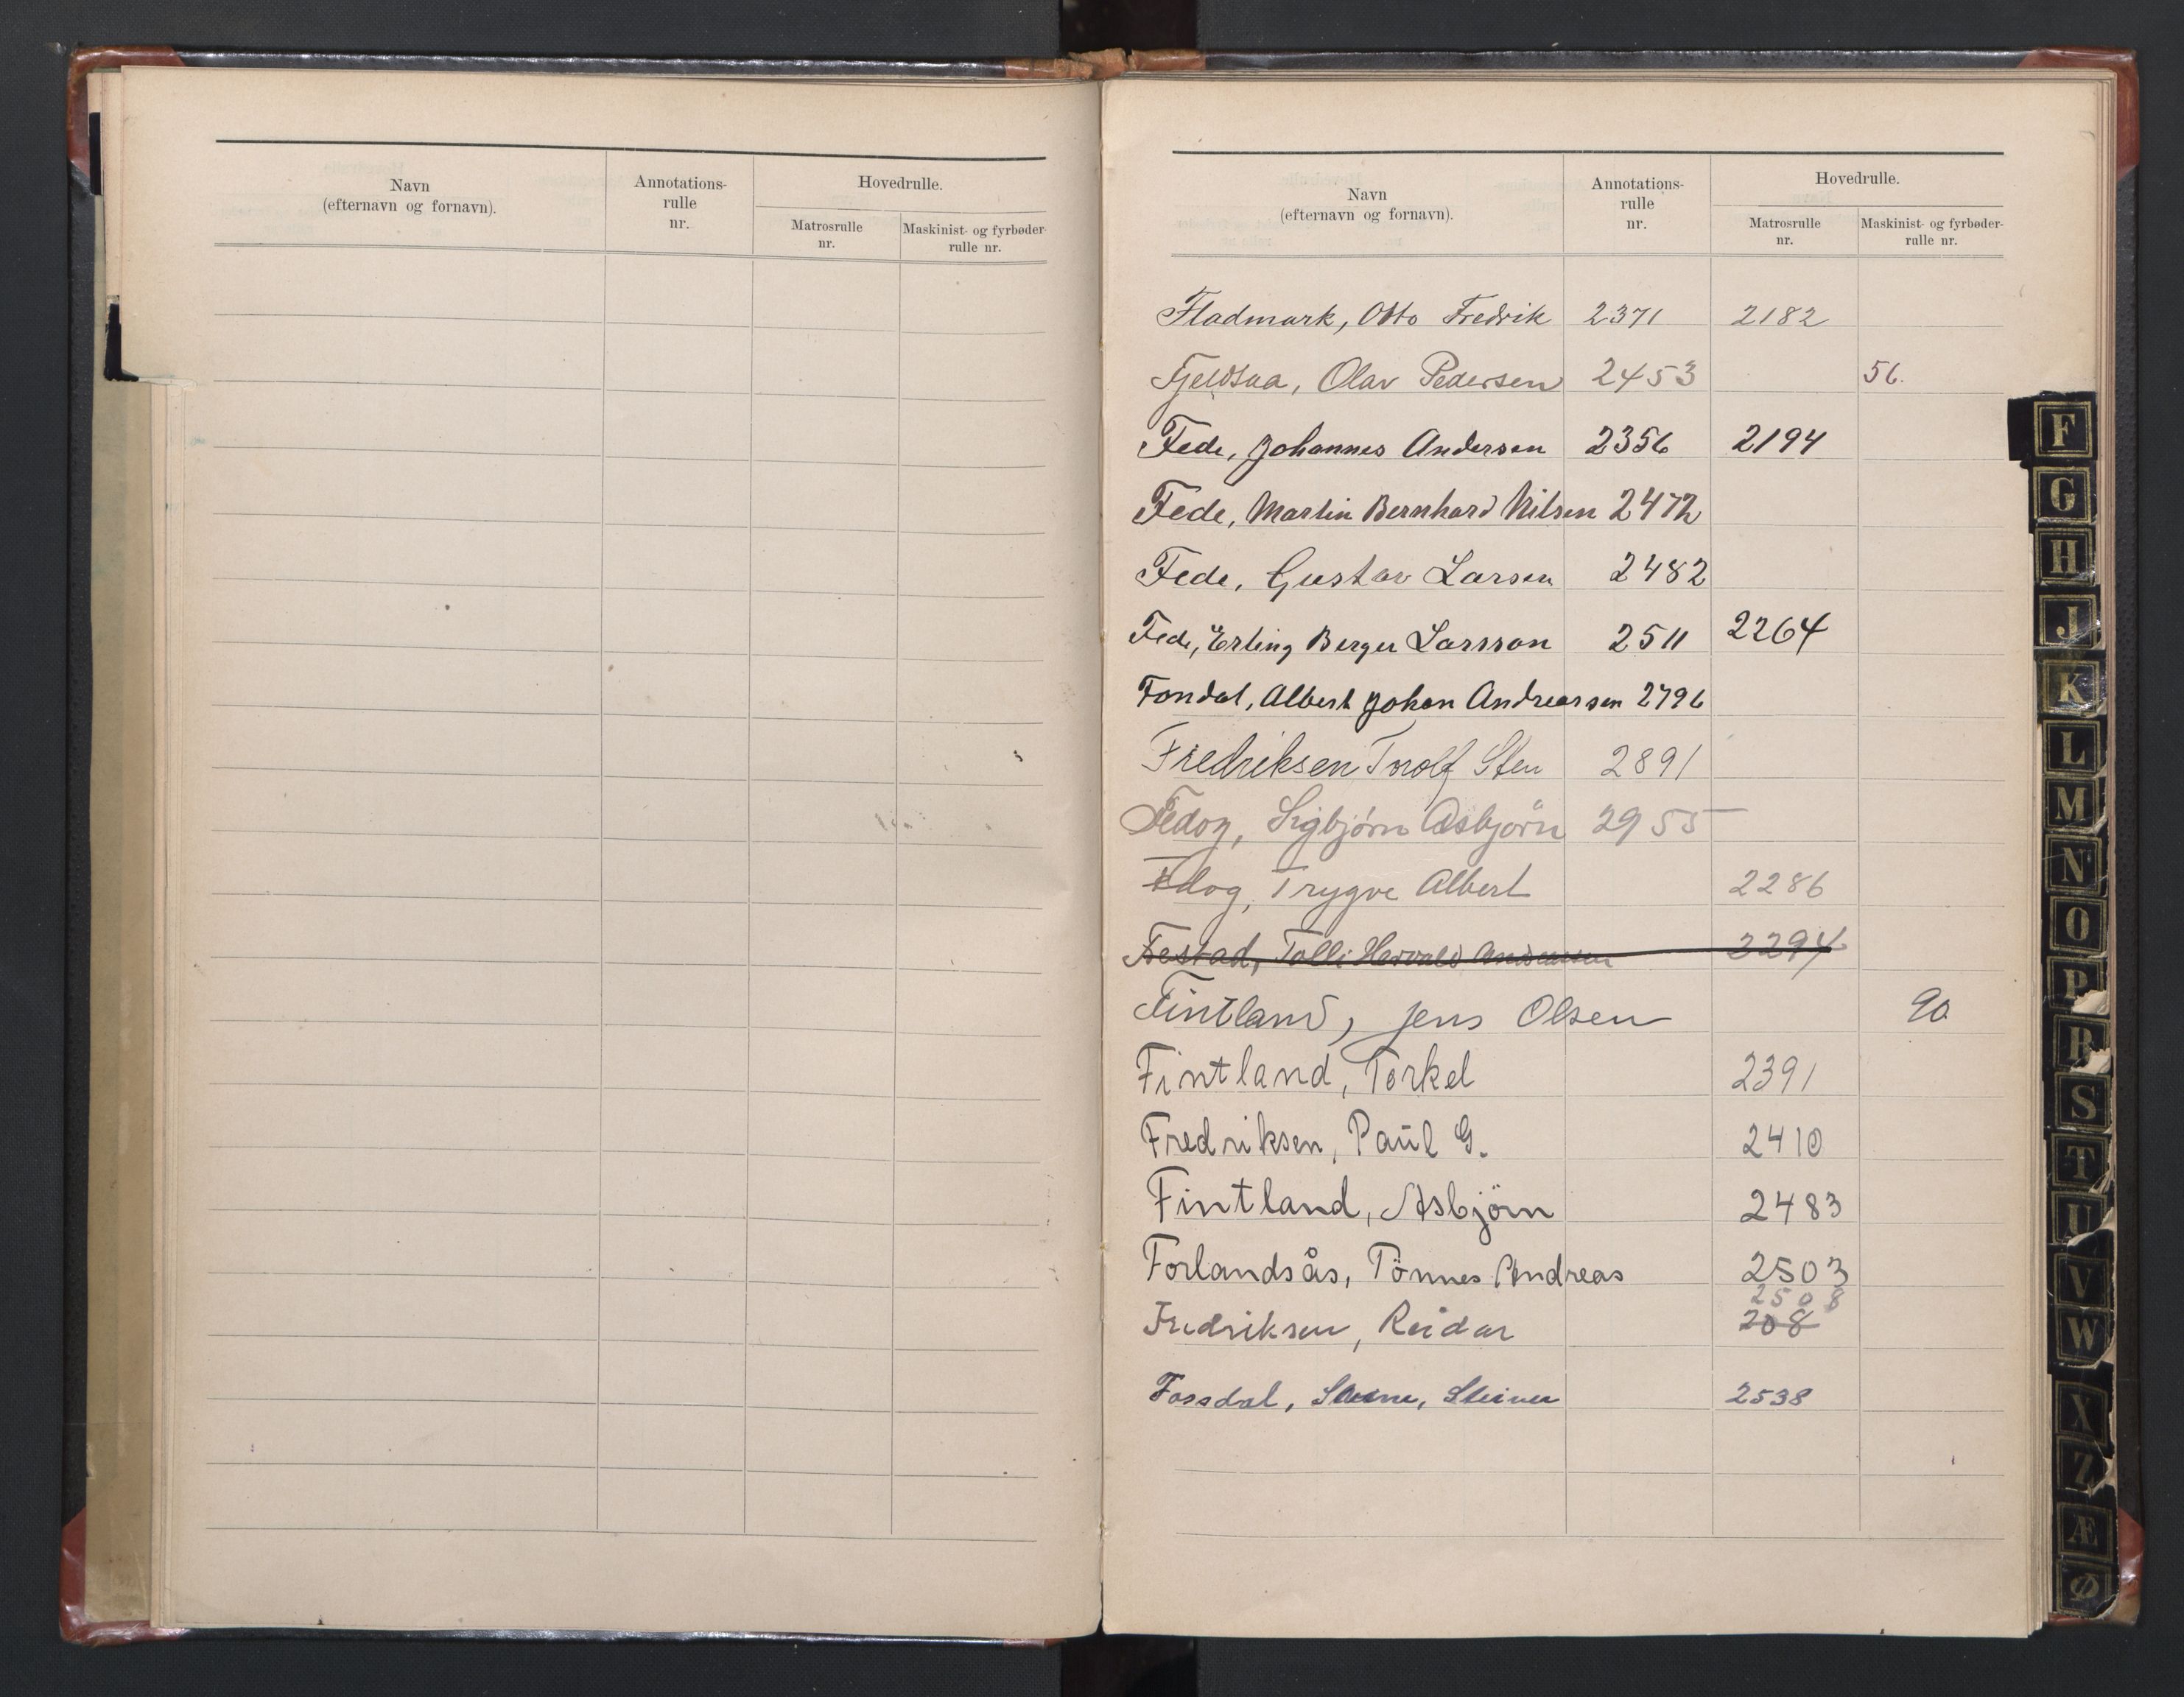 Navn
(efternavn og fornavn).
Annotations-
rulle
nr.
Hovedrulle.
Matrosrulle
nr.
Maskinist- og fyrbøder-
rulle nr.
Navn
(efternavn og fornavn).
Annotations-
rulle
nr.
Hovedrulle.
Matrosrulle
nr.
Maskinist- og fyrbøder-
rulle nr.
Fladmark, Otto Fredrik 2371 2182
Fjeldsaa, Olav Pedersen 2453 56.
Fede, Johannes Andersen 2356 2194
Fede, Martin Bernhard Nilsen 2472
Fede, Gustav Larsen 2482
Fede, Erling Berger Larsson 2511 2264
Fondal, Albert Johan Andreassen 2796
Fredriksen Torolf Sten 2891
Fedog, Sigbjørn Asbjørn 2955
Fedog, Trygve Albert 2286
Festad, Tolli Harald Andreassen 2294
Fintland, Jens Olsen 90
Fintland, Torkel 2391
Fredriksen, Paul G. 2410
Fintland, Asbjörn 2483
Forlandsås, Tönnes Andreas 2503
2508
Fredriksen, Reidar 208
Fossdal, Steinar 2538
F
G
H
J
K
L
M
N
O
P
R
S
T
U
V
W
X
Z
Æ
Ø